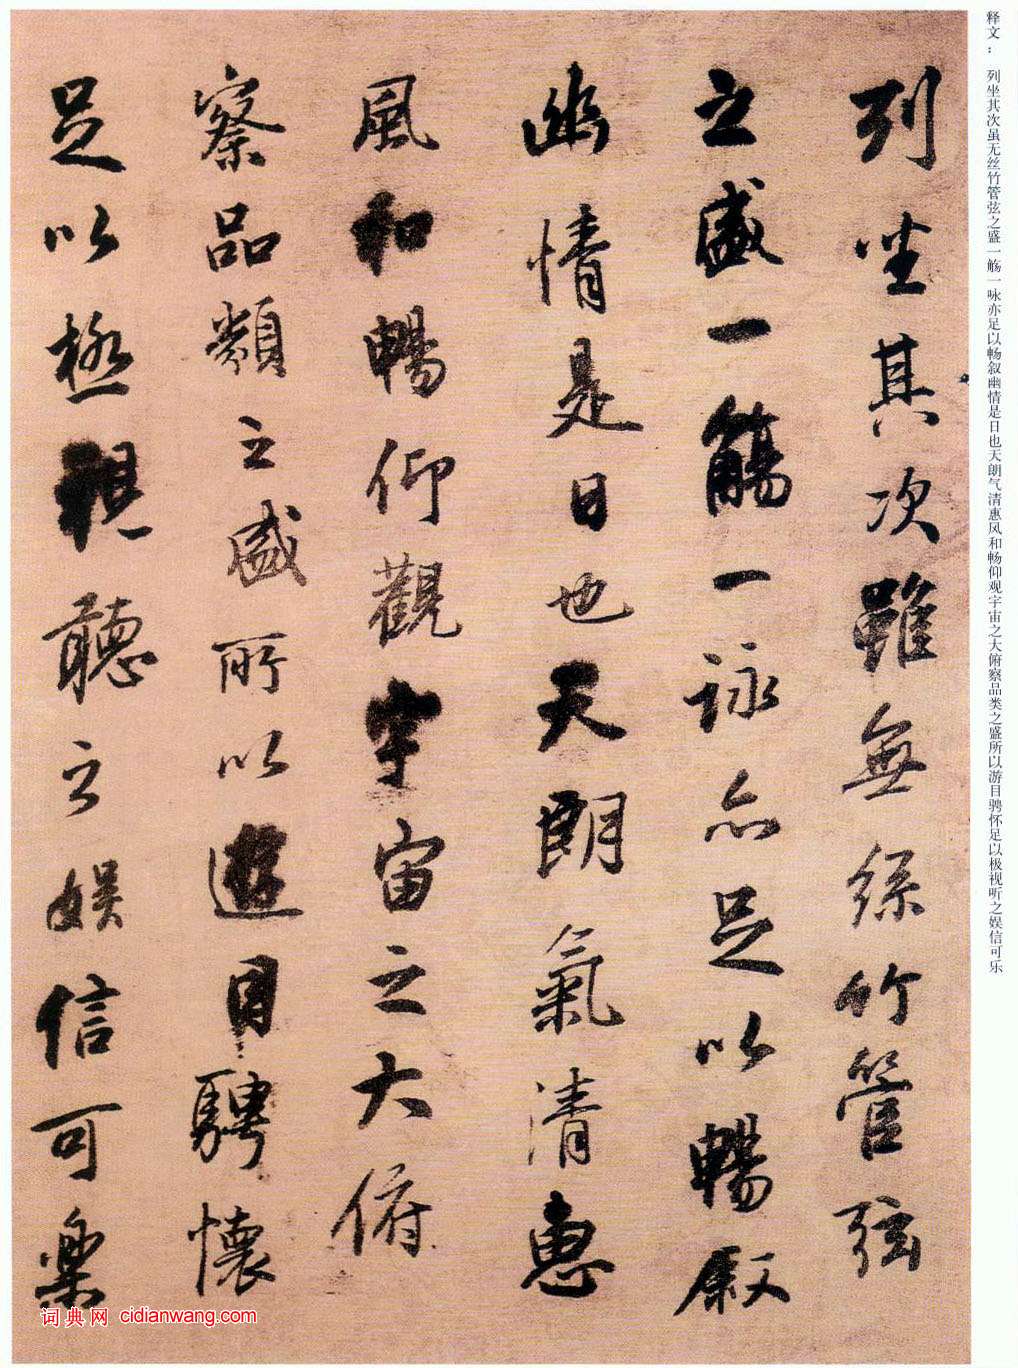 释文： 列坐其次虽无丝竹管弦之盛一觞一咏亦足以畅叙幽情是日也天朗气清惠风和畅仰观宇宙之大俯察品类之盛所以游目骋怀足以极视听之娱信可乐
列坐其次雖無絲竹管弦
之盛一觴一詠亦足以暢叙
幽情是日也天朗氣清惠
風和暢仰觀宇宙之大俯
察品類之盛所以遊目騁懷
足以極視聽之娱信可樂
词典网 cidianwang.com